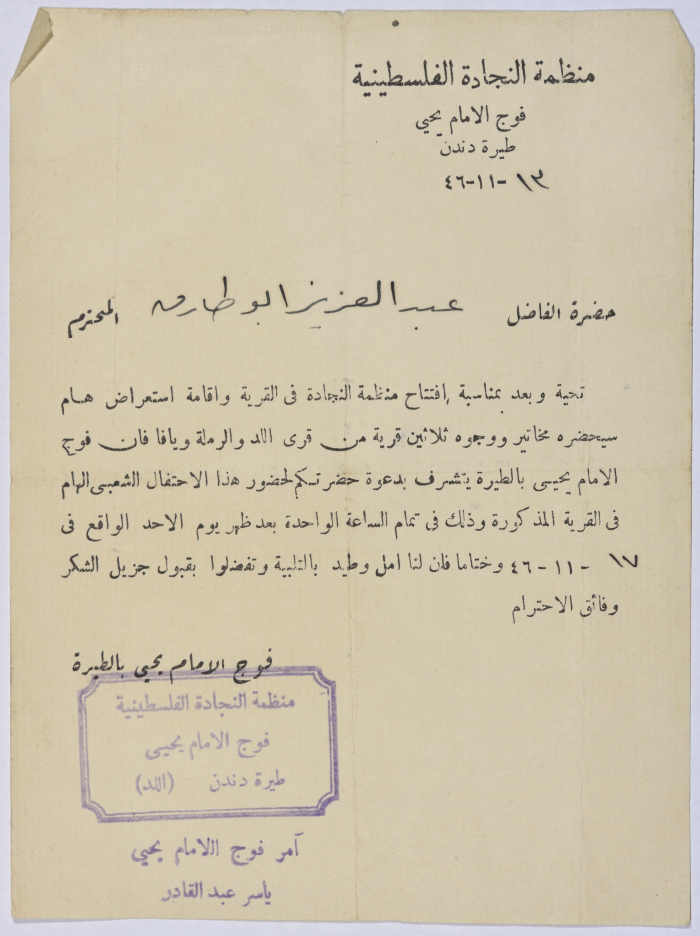 منظمة النجادة الفلسطينية
فوج الامام يحيي
طيرة دندن
١٣-١١-٤٦
حضرة الفاضل عبد العزيز ابو طارق المحترم
تحية وبعد بمناسبة إفتتاح منظمة النجادة فى القرية واقامة استعراض هام
سيحضره مخاتير ووجوه ثلاثين قرية من قرى اللد والرملة ويافا فان فوج
الامام يحيى بالطيرة يتشرف بدعوة حضرتكم لحضور هذا الاحتفال الشعبى الهام
فى القرية المذكورة وذلك فى تمام الساعة الواحدة بعد ظهر يوم الاحد الواقع فى
١٧ -١١-٤٦ وختاما فان لنا امل وطيد بالتلبية وتفضلوا بقبول جزيل الشكر
وفائق الاحترام
فوج الامام يحيي بالطيرة
منظمة النجادة الفلسطينية
فوج الامام يحيى
طيرة دندن (اللد)
آمر فوج الامام يحيي
ياسر عبد القادر